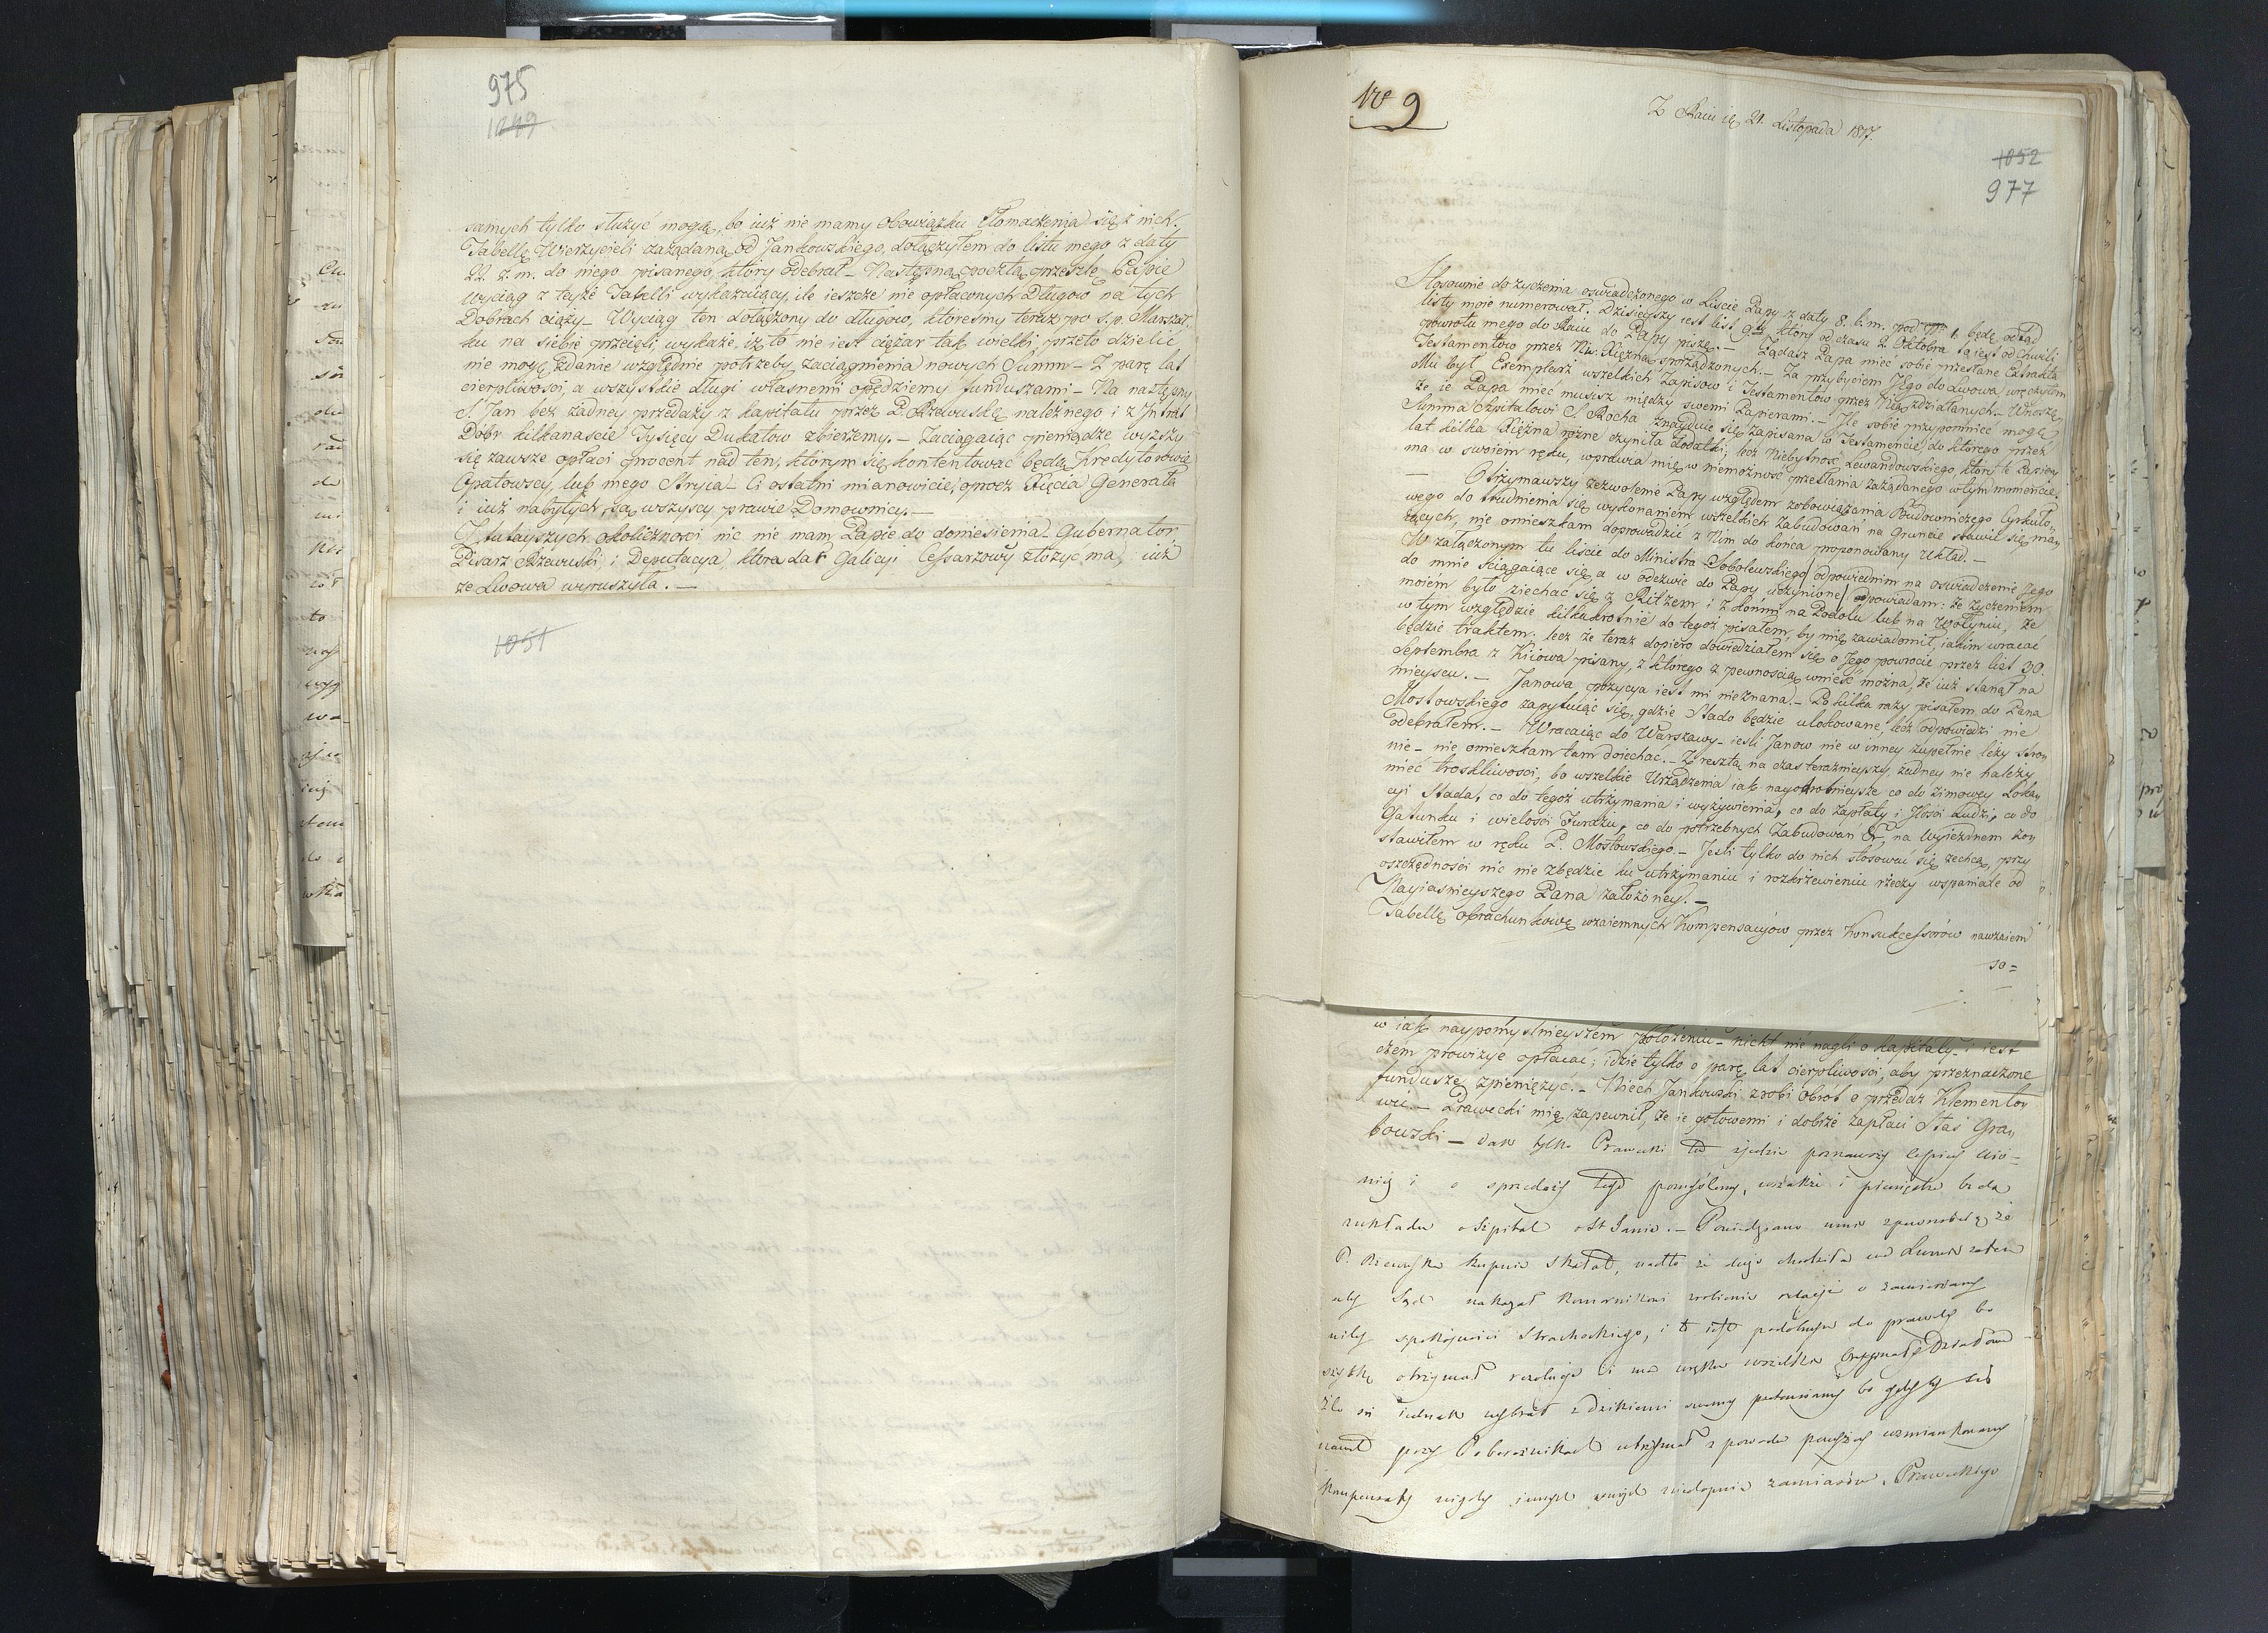 975
1049
samych tylko służyć mogą, bo iuż nie mamy obowiązku tłomaczenia się z nich.
Tabellę Wierzycieli zażądaną od Jankowskiego, dołączyłem do listu mego z daty
22. z. m. do niego pisanego, który odebrał_ Następną pocztą przeszlę Papie
wyciąg z teyże Tabelli wykazuiący, ile ieszcze nie opłaconych Długow na tych
Dobrach ciąży_ Wyciąg ten dołączony do długow, któreśmy teraz po s.p. Marszał„
ku na siebie przeięli wykaże, iż to nie iest ciężar tak wielki, przeto dzielić
nie mogę zdanie względnie potrzeby zaciągnienia nowych Summ_ Z parę lat
cierpliwości, a wszystkie długi własnemi opędziemy funduszami_ Na następny
S. Jan bez żadney przedaży z kapitału przez P. Rzewuskę należnego i z Intrat
Dóbr kilkanaście Tysięcy Dukatow zbierzemy._ Zaciągaiąc pieniądze wyższy
się zawsze opłaci procent nad ten, którym się kontentować będą Kredytorowie
Opatowscy, lub mego Stryia_ Ci ostatni mianowicie, oprocz Xięcia Generała
i iuż nabytych, są wszyscy prawie Domownicy._
Z tutayszych okoliczności nic nie mam Papie do doniesienia_ Gubernator
Pisarz Rzewuski i Deputacya, która dar Galicyi Cesarzowy złożyć ma, iuż
ze Lwowa wyruszyła._
1051
Nro 9
Z Raiu d. 21. Listopada 1817.
1052
977
Stosownie do życzenia oswiadczonego w Liście Papy z daty 8. b. m. pod Nr 1. będę odtąd
listy moie numerował. Dzisieyszy iest list 9ty, który od czasu 2. Oktobra to iest od chwili
powrotu mego do Raiu do Papy piszę._ Żądasz Papa mieć sobie przesłane Extrakta
Testamentow przez Nib. Xiężnę sporządzonych._ Za przybyciem Jego do Lwowa, wręczyłem
Mu był Exemplarz wszelkich Zapisow i Testamentów przez Nię zdziałanych_ Wnoszę,
że ie Papa mieć musisz między swemi Papierami._ Ile sobie przypomnieć mogę,
Summa Szpitalowi S. Rocha znayduie się zapisana w Testamencie, do którego przez
lat kilka Xiężna rożne czyniła dodatki, lecz Niebytność Lewandowskiego, który te Papiery
ma w swoiem ręku, wprawia mię w niemożność przesłania zażądanego w tym momencie.
_ Otrzymawszy zezwolenie Papy względem zobowiązania Budowniczego Cyrkuło„
wego do trudnienia się wykonaniem wszelkich Zabudowań na Gruncie stawić się ma„
iących, nie omieszkam doprowadzić z Nim do końca proponowany Układ._
W załączonym tu liście do Ministra Sobolewskiego odpowiednim na oswiadczenie Jego
do mnie ściągaiące się, a w odezwie do Papy uczynione, odpowiadam: że życzeniem
moiém było ziechać się z Ritzem i z końmi na Podolu lub na Wołyniu, że
w tym względzie kilkakrotnie do tegoż pisałem, by mię zawiadomił, iakim wracać
będzie traktem. lecz że teraz dopiero dowiedziałem się o Jego powrocie przez list 30.
Septembra z Kiiowa pisany, z którego z pewnością wnieść można, że iuż stanął na
mieyscu._ Janowa pozycya iest mi nieznana._ Po kilka razy pisałem do Pana
Mostowskiego zapytuiąc się, gdzie Stado będzie ulokowane, lecz odpowiedzi nie
odebrałem._ Wracaiąc do Warszawy_ iesli Janow nie w inney zupełnie leży stro„
nie_ nie omieszkam tam doiechać._ Z resztą na czas teraźnieyszy żadney nie należy
mieć troskliwości, bo wszelkie Urządzenia iak naydrobnieysze co do zimowey Loka„
cyi Stada, co do tegoż utrzymania i wyżywienia, co do zapłaty i Ilości Ludzi, co do
Gatunku i wielości Furażu, co do potrzebnych Zabudowan &c, na Wyiezdnem zo„
stawiłem w ręku P. Mostowskiego_ Jesli tylko do nich stosować się zechcą, przy
oszczędności nic nie zbędzie ku utrzymaniu i rozkrzewieniu rzeczy wspaniale od
Nayiaśnieyszego Pana założoney._
Tabellę obrachunkową wzaiemnych Kompensacyów przez Konsukcessorów nawzaiem
so=
w iak naypomyślnieyszem położeniu_ nickt nie nagli o kapitały_ i iest
czém prowizye opłacać; idzie tylko o parę lat cierpliwości, aby przeznaczone
fundusze zpieniężyć._ Niech Jankowski zrobi obrót o przedaż Klemento„
wic_ Prawecki mię zapewnił, że ie gotowemi i dobrze zapłaci Staś Gra„
bowski_ Jak tylko Prawecki tu zjedzie poznawszy lepiej
nię i o sprzedaży tego pomyślemy, wszakże i pieniędze będą
układu o Szpital o St Janie._ Powiedziano mnie z pewnością że
P. Rzewuska kupuie Skałat,
Sąd nakazał Komornikowi zrobienie relacyi o
spokoyności Strachockiego, i to iest podobnym do prawdy bo
otrzymał rezolucye
Zle się iednak wybrał z
przy utrzymał z powodu
Kompensaty nigdy zamiarów. Praweckiego